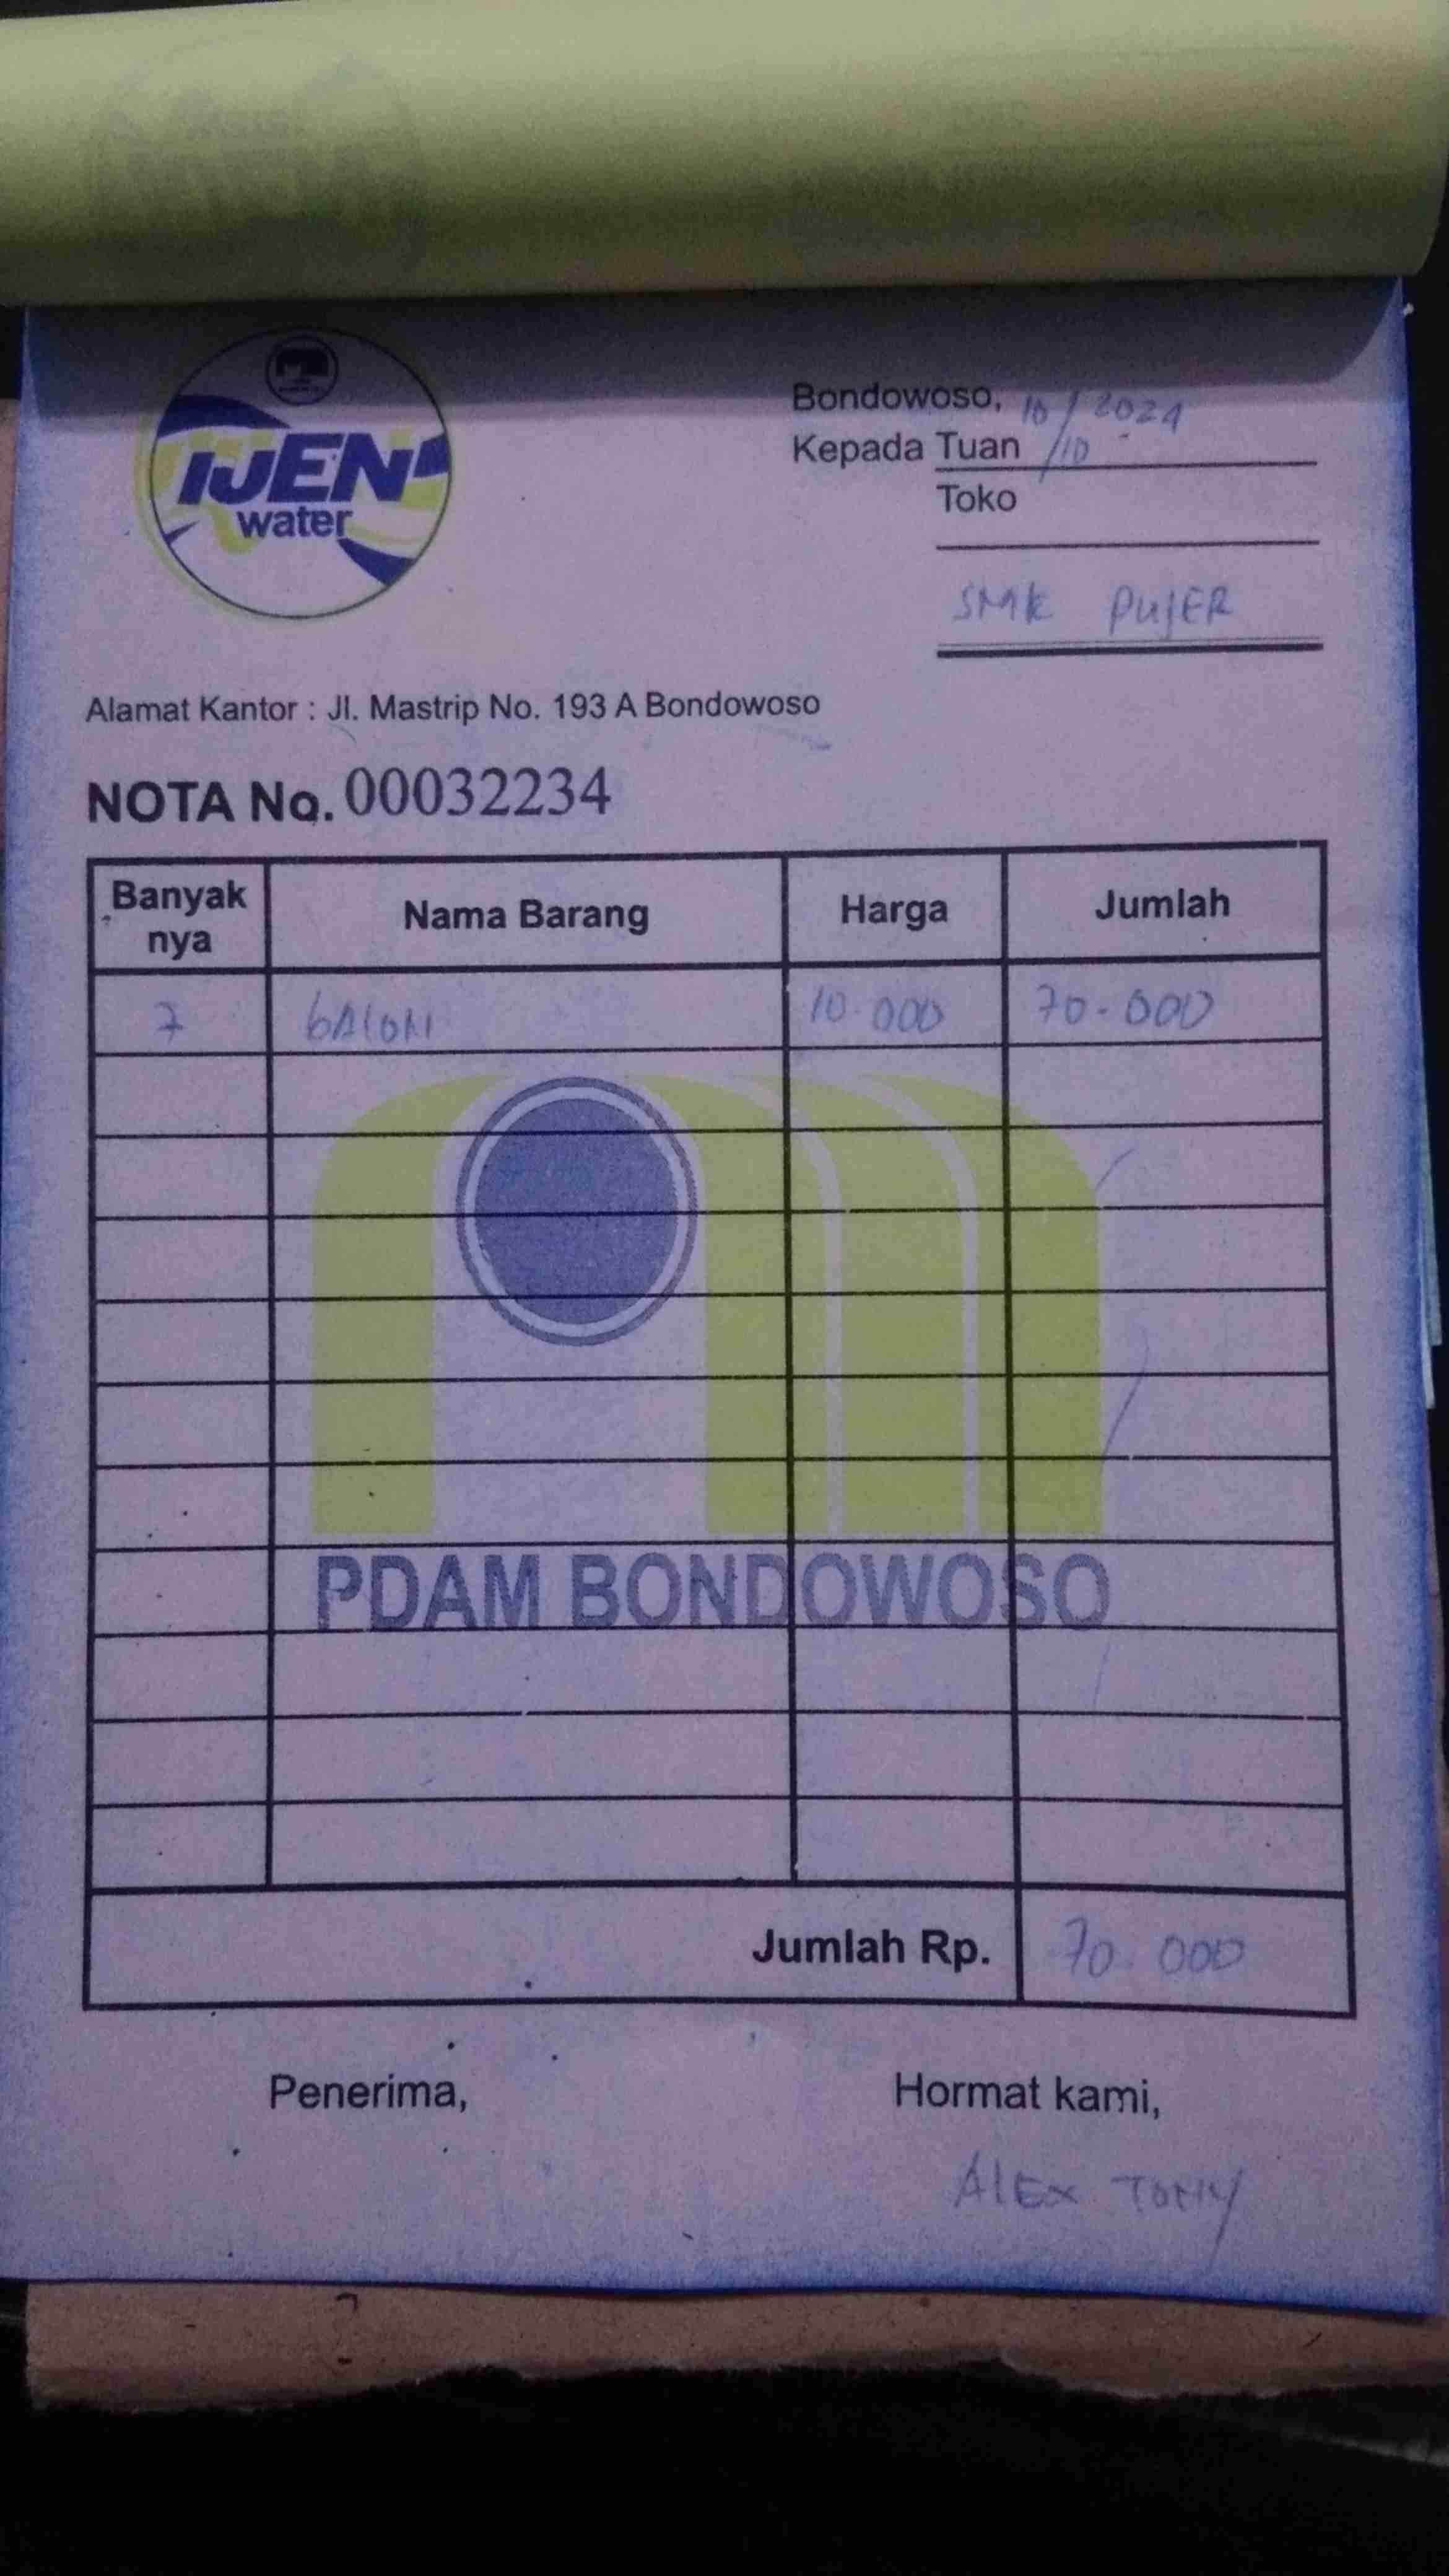 IJEN
water
Bondowoso, 10/10 2024
Kepada Tuan
Toko
SMK PUJER
Alamat Kantor : Jl. Mastrip No. 193 A Bondowoso
NOTA No. 00032234
Banyak nya Nama Barang Harga Jumlah
7 GALON 10.000 70.000
PDAM BONDOWOSO
Jumlah Rp. 70.000
Penerima, Hormat kami,
ALEX TONY